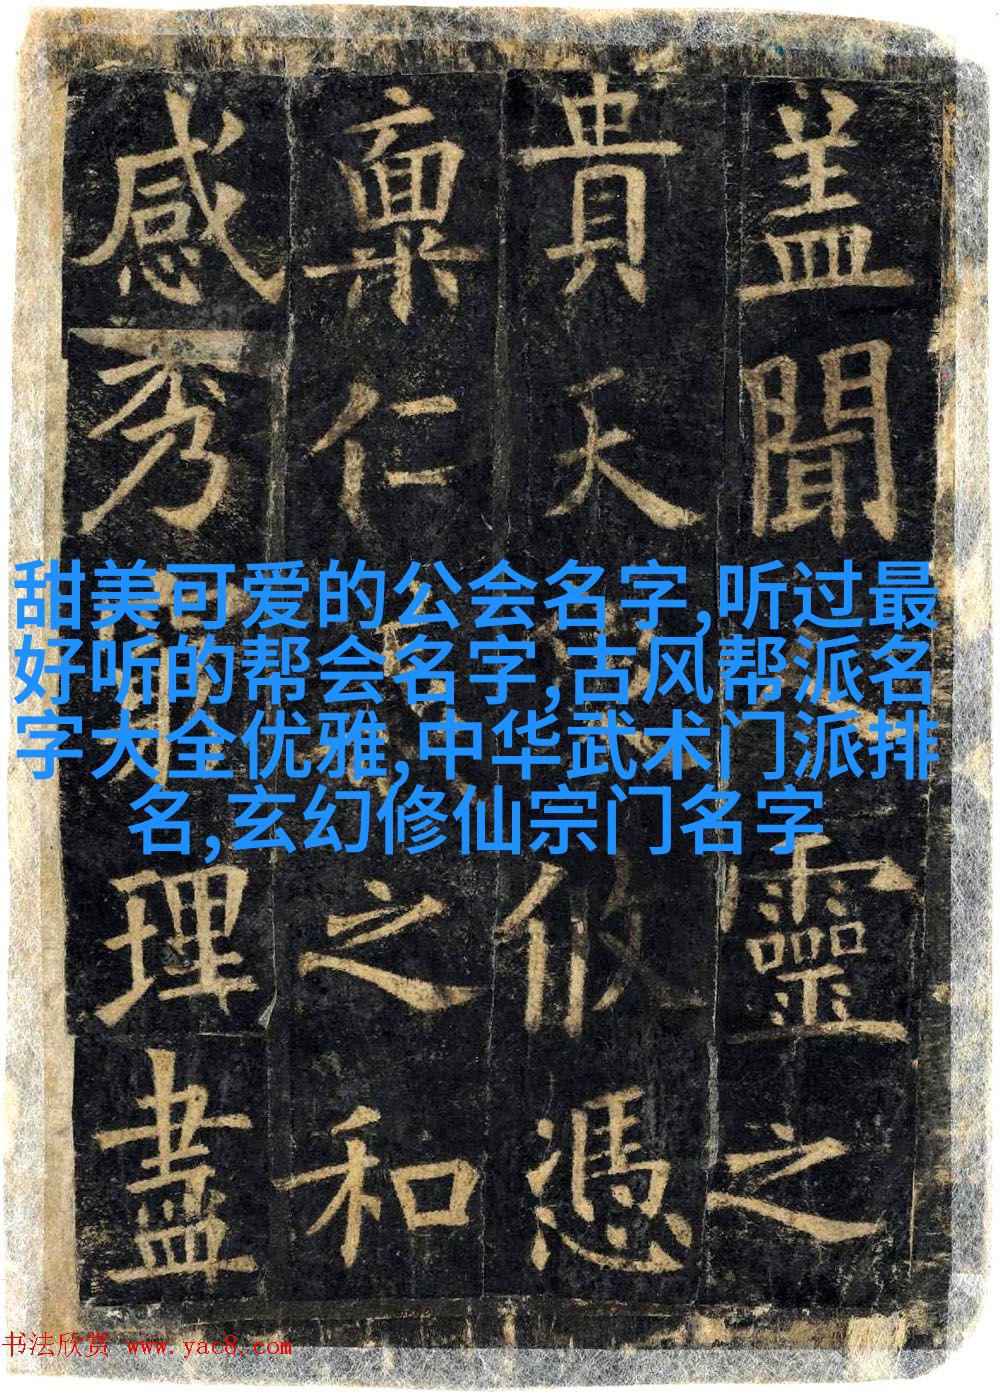 盖聞靈之
貴天攸憑
稟仁之和
感秀理盡
甜美可爱的公会名字,听过最
好听的帮会名字,古风帮派名
字大全优雅,中华武术门派排
名,玄幻修仙宗门名字
书法欣赏 www.yac8.com